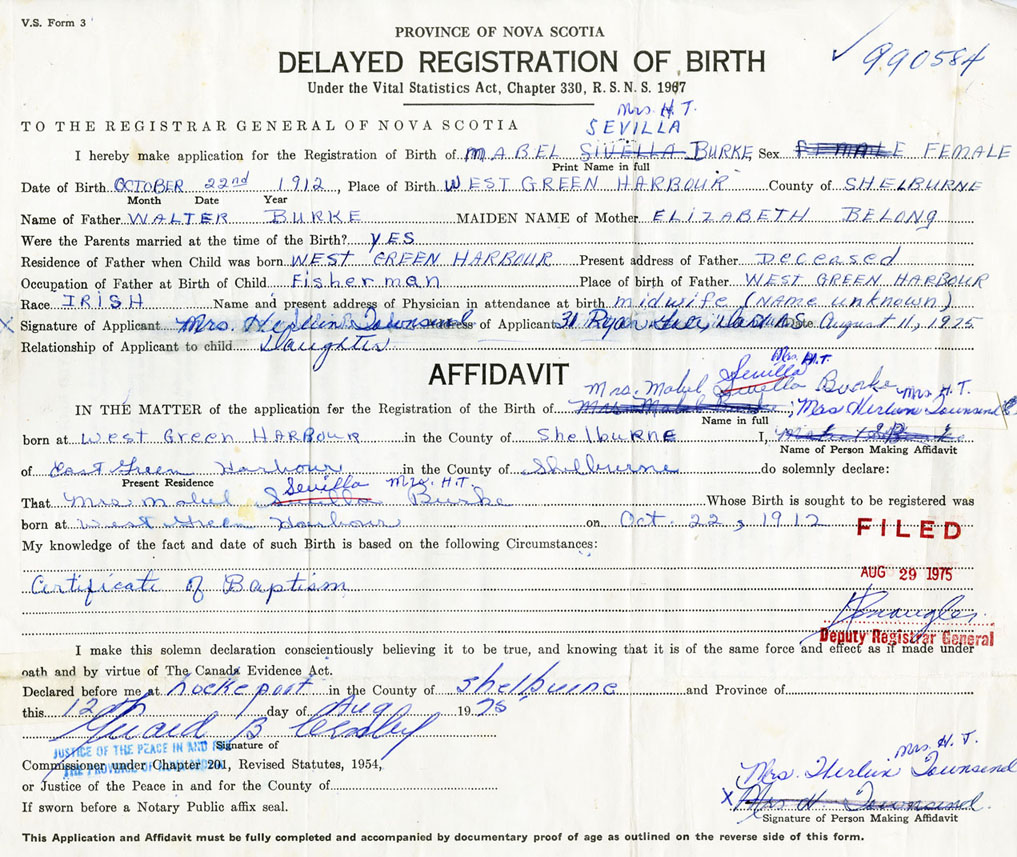 V.S. Form 3
PROVINCE OF NOVA SCOTIA
DELAYED REGISTRATION OF BIRTH
990584
Under the Vital Statistics Act, Chapter 330, R. S. N. S. 1967
Mrs. H. T.
TO THE REGISTRAR GENERAL OF NOVA SCOTIA SEVILLA
I hereby make application for the Registration of Birth of MABEL SIVELLA BURKE, Sex FEMALE FEMALE
Print Name in full
Date of Birth OCTOBER 22nd 1912, Place of Birth WEST GREEN HARBOUR County of SHELBURNE
Month Date Year
Name of Father WALTER BURKE MAIDEN NAME of Mother ELIZABETH BELONG
Were the Parents married at the time of the Birth? YES
Residence of Father when Child was born WEST GREEN HARBOUR Present address of Father Deceased
Occupation of Father at Birth of Child Fisherman Place of birth of Father WEST GREEN HARBOUR
Race IRISH Name and present address of Physician in attendance at birth midwife (NAME unknown)
X Signature of Applicant Mrs. Townsend of Applicant 31 Ryan August 11, 1975
Relationship of Applicant to child Daughter
Mrs. H.T.
AFFIDAVIT
Sevilla
Mrs. Mabel Burke Mrs H. T.
IN THE MATTER of the application for the Registration of the Birth of Mrs. Mabel Burke; Mrs Herlin Townsend
Name in full
born at West Green HARBOUR in the County of Shelburne I,
Name of Person Making Affidavit
of East Green Harbour in the County of Shelburne do solemnly declare:
Present Residence
Sevilla Mrs. H.T.
That Mrs Mabel Burke Whose Birth is sought to be registered was
born at West Green Harbour on Oct. 22, 1912
FILED
My knowledge of the fact and date of such Birth is based on the following Circumstances:
AUG 29 1975
Certificate of Baptism
Deputy Registrar General
I make this solemn declaration conscientiously believing it to be true, and knowing that it is of the same force and effect as if made under
oath and by virtue of The Canada Evidence Act.
Declared before me at Lockeport in the County of Shelburne and Province of
this 12th day of Aug 1975
JUSTICE OF THE PEACE IN AND FOR
Signature of
THE PROVINCE OF
Commissioner under Chapter 201, Revised Statutes, 1954,
or Justice of the Peace in and for the County of
If sworn before a Notary Public affix seal.
Mrs. H. T.
Mrs. Herlin Townsend
X Mrs H Townsend
Signature of Person Making Affidavit
This Application and Affidavit must be fully completed and accompanied by documentary proof of age as outlined on the reverse side of this form.